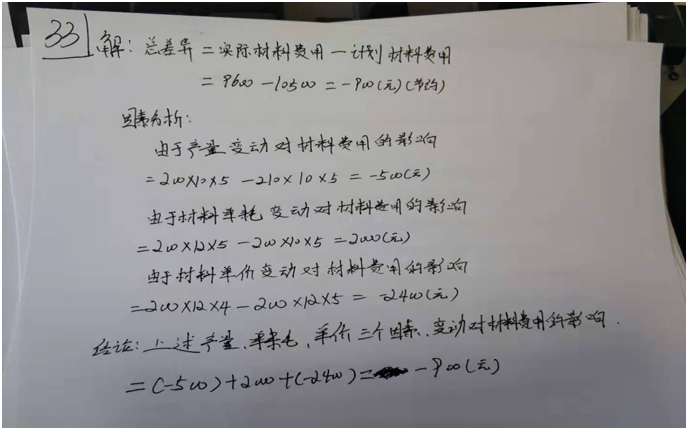 33 解: 总差异 = 实际材料费用 - 计划材料费用
= 9600 - 10500 = -900(元)(节约)
因素分析:
由于产量变动对材料费用的影响
= 200×10×5 - 210×10×5 = -500(元)
由于材料单耗变动对材料费用的影响
= 200×12×5 - 200×10×5 = 2000(元)
由于材料单价变动对材料费用的影响
= 200×12×4 - 200×12×5 = -2400(元)
结论: 上述产量、单耗、单价三个因素、变动对材料费用的影响.
= (-500)+2000+(-2400)= -900(元)